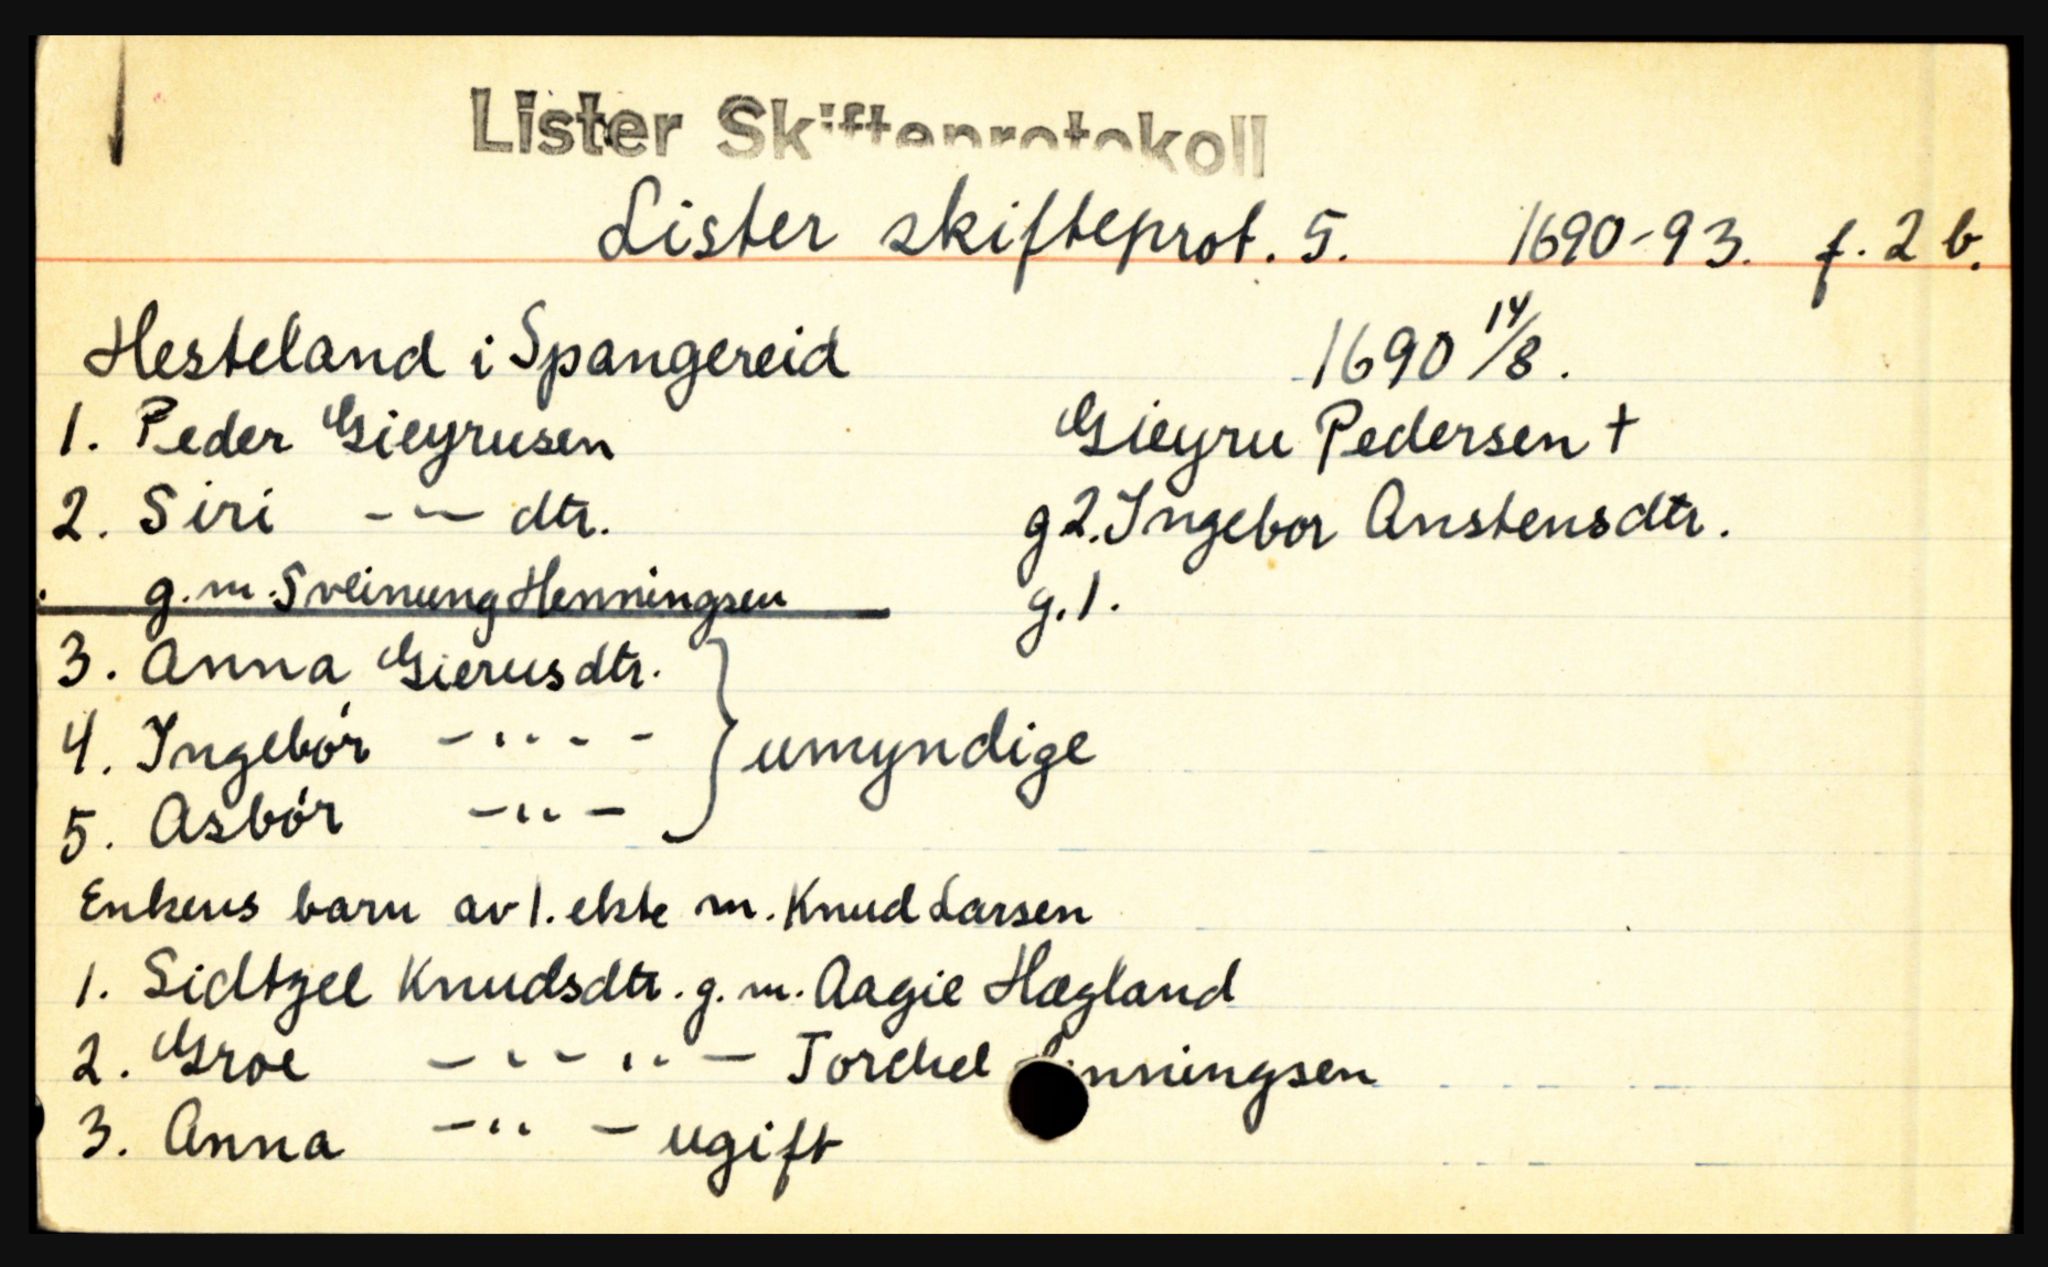 Lister Skifteprotokoll
Lister skifteprot. 5. 1690-93. f. 2 b.
Hesteland i Spangereid 1690 14/8.
1. Peder Gieyrusen Gieyru Pedersen +
2. Siri - - - dtr. g 2. Ingebor Anstensdtr.
g. m. Sveinung Henningsen g. 1.
3. Anna Gierusdtr.
4. Ingebór - " - - umyndige
5. Asbór - " -
Enkens barn av 1. ekte m. Knud Larsen
1. Sidtzel Knudsdtr. g. m. Aagie Hægland
2. Groe - " - " - Torchel
3. Anna - " - ugift